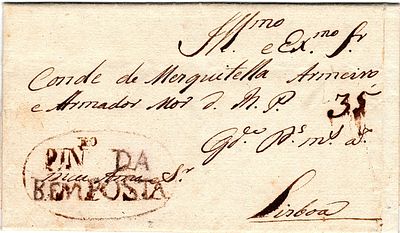 Ill.mo
e Ex.mo Sr.
Conde de Mesquitella Armeiro
e Armador Mor d. N. P.
35
G.de P.s m.s a.s
PIN.ro DA
BEMPOSTA
meu Amo Sr
Lisboa